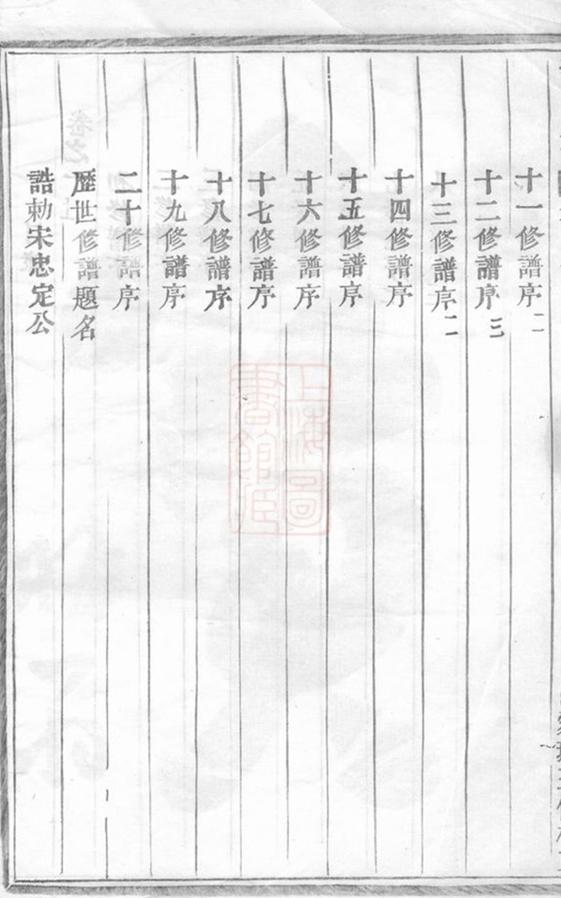 十一修譜序二
十二修譜序三
十三修譜序二
十四修譜序
十五修譜序
十六修譜序
十七修譜序
十八修譜序
十九修譜序
二十修譜序
歷世修譜題名
誥勅宋忠定公
上海圖
書館藏